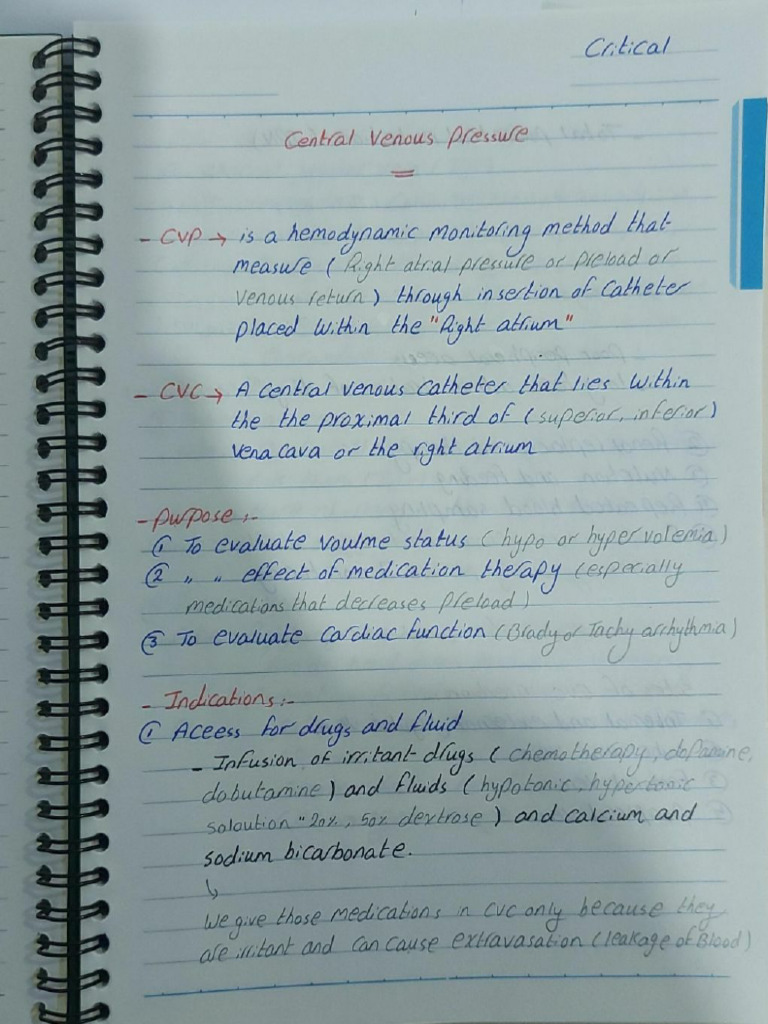 Critical
Central Venous Pressure
- CVP → is a hemodynamic monitoring method that
measure (Right atrial pressure or preload or
venous return) through insertion of catheter
placed within the "Right atrium"
- CVC → A central venous catheter that lies within
the the proximal third of (superior, inferior)
vena cava or the right atrium
- purpose :-
① To evaluate voulme status (hypo or hyper volemia)
② " " effect of medication therapy (especially
medications that decreases preload)
③ To evaluate cardiac function (Brady or Tachy arrhythmia)
- Indications :-
① Aceess for drugs and fluid
- Infusion of irritant drugs (chemotherapy, dopamine,
dobutamine) and fluids (hypotonic, hypertonic
soloution "20%, 50% dextrose) and calcium and
sodium bicarbonate.
↳
We give those medications in CVC only because they
are irritant and can cause extravasation (leakage of Blood)